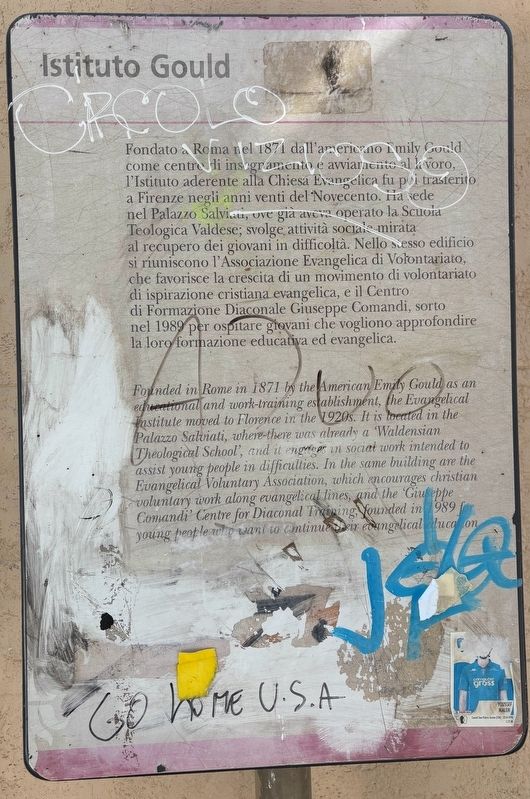 Istituto Gould
CIRCOLO
VIZIOSO
Fondato a Roma nel 1871 dall'americano Emily Gould
come centro di insegnamento e avviamento al lavoro,
l'Istituto aderente alla Chiesa Evangelica fu poi trasferito
a Firenze negli anni venti del Novecento. Ha sede
nel Palazzo Salviati, ove già aveva operato la Scuola
Teologica Valdese; svolge attività sociale mirata
al recupero dei giovani in difficoltà. Nello stesso edificio
si riuniscono l'Associazione Evangelica di Volontariato,
che favorisce la crescita di un movimento di volontariato
di ispirazione cristiana evangelica, e il Centro
di Formazione Diaconale Giuseppe Comandi, sorto
nel 1989 per ospitare giovani che vogliono approfondire
la loro formazione educativa ed evangelica.
Founded in Rome in 1871 by the American Emily Gould as an
educational and work-training establishment, the Evangelical
Institute moved to Florence in the 1920s. It is located in the
Palazzo Salviati, where there was already a 'Waldensian
Theological School', and it engages in social work intended to
assist young people in difficulties. In the same building are the
Evangelical Voluntary Association, which encourages christian
voluntary work along evangelical lines, and the 'Giuseppe
Comandi' Centre for Diaconal Training, founded in 1989 for
young people who want to continue their evangelical education
GO HOME U.S.A
computer
gross
YOUSSEF
MALEH